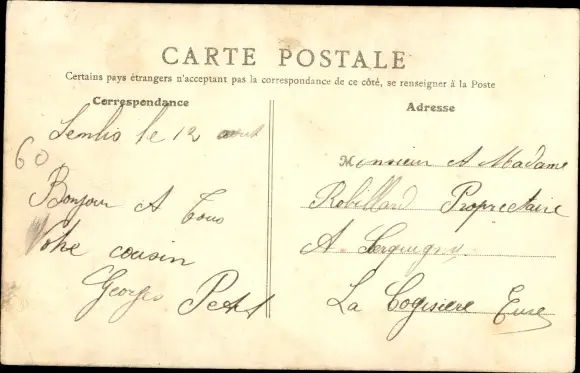 CARTE POSTALE
Certains pays étrangers n'acceptant pas la correspondance de ce côté, se renseigner à la Poste
Correspondance
Adresse
le 12 août
60
Bonjour A Tous
Votre cousin
Georges Petit
Monsieur A Madame
Robillard Proprietaire
A Serquigny
La Eure